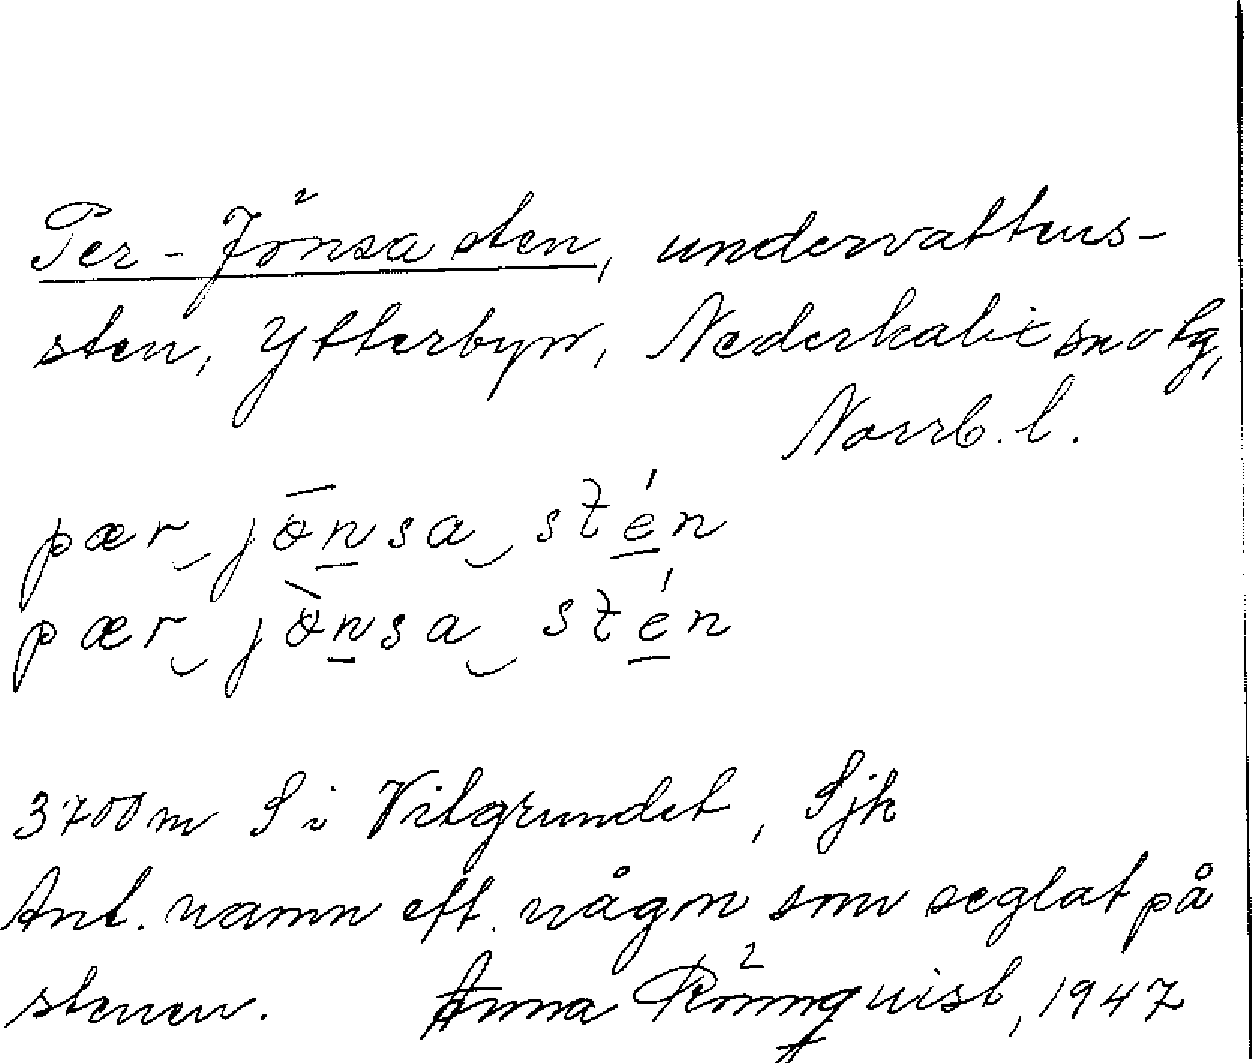 Per-Jönsasten, undervattens-
sten, Ytterbyn, Nederkalix sn o tg,
Norrb. l.
pær‿jȫn̲sa‿sté̲n
pær‿jö̀n̲sa‿sté̲n
3700m S i Vitgrundet, Sjk
Ant. namn eft. någon som seglat på
stenen. Anna Rönnqvist, 1947